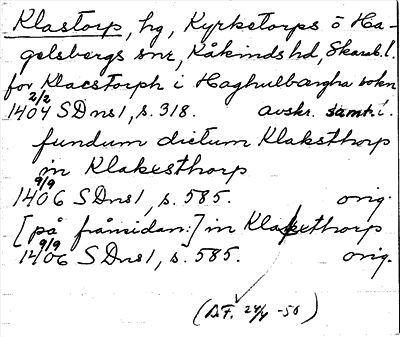 Klastorp, hg, Kyrketorps o Ha-
gelsbergs snr, Kåkinds hd, Skarab. l.
for Klacstorph i Haghulbærgha sokn
2/2
1404 SDns 1, s. 318. avskr. samt. i.
fundum dictum Klaksthorp
in Klakesthorp
9/9
1406 SDns 1, s. 585. orig.
[på frånsidan:] in Klakesthorp
9/9
1406 SDns 1, s. 585. orig.